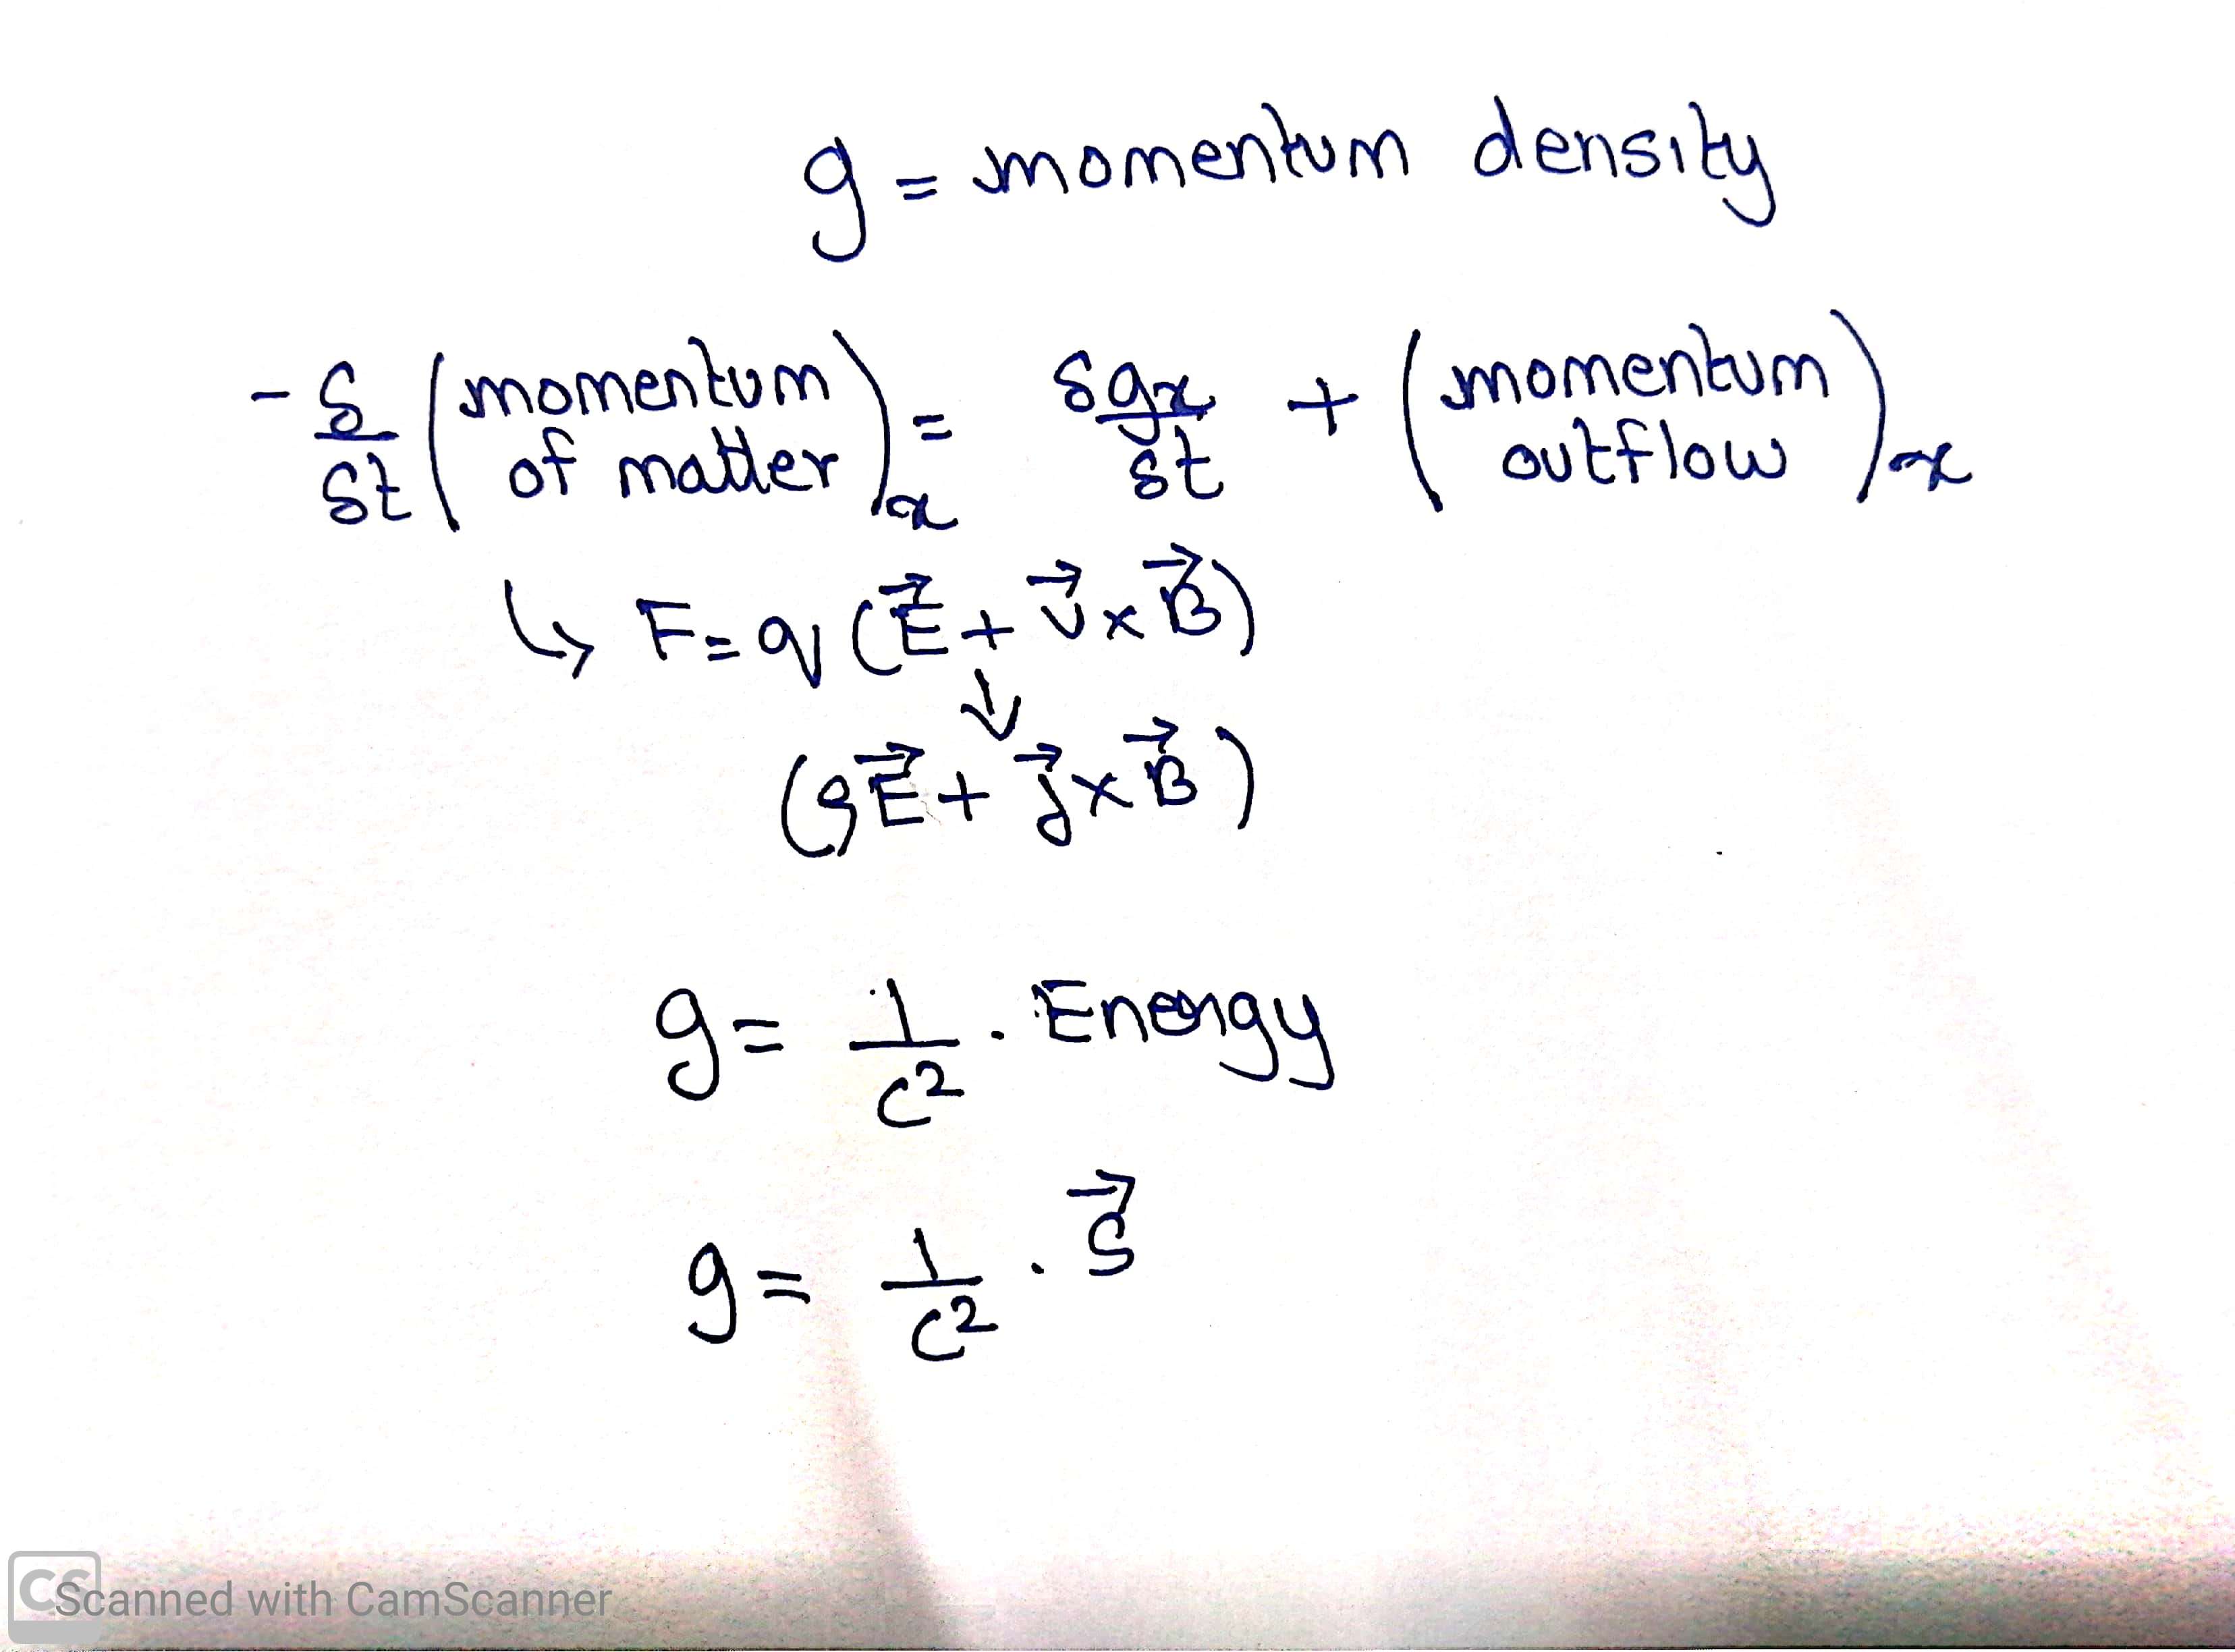 g = momentum density
- δ/δt (momentum of matter)x = δgx/δt + (momentum outflow)x
↳ F = q (E⃗ + v⃗ × B⃗)
↓
(ρE⃗ + j⃗ × B⃗)
g = 1/c² . Energy
g = 1/c² . S⃗
CS
Scanned with CamScanner